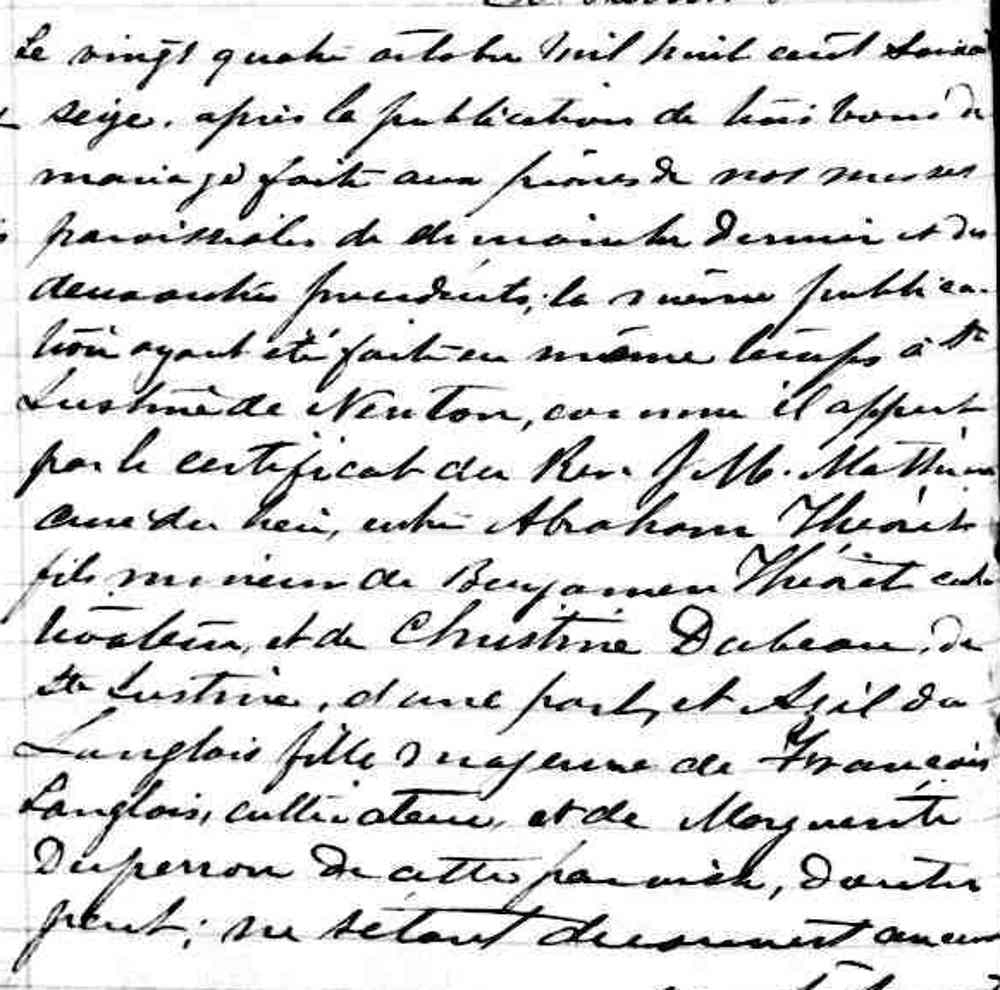 Le vingt quatre octobre mil huit cent soixante
seize, après la publication de trois bans de
mariage faite aux prônes de nos messes
paroissiales de dimanche dernier et des
deux autres précédents; la même publica-
tion ayant été faite en même temps à Ste
Justine de Newton, comme il appert
par le certificat du Rev. J. M. Mathieu
curé du lieu, entre Abraham Théorêt
fils mineur de Benjamen Théorêt cul-
tivateur, et de Christine Dubeau, de
Ste Justine, d'une part, et Azilda
Langlois fille majeure de François
Langlois, cultivateur, et de Marguerite
Duperron de cette paroisse, d'autre
part; ne s'étant découvert aucun